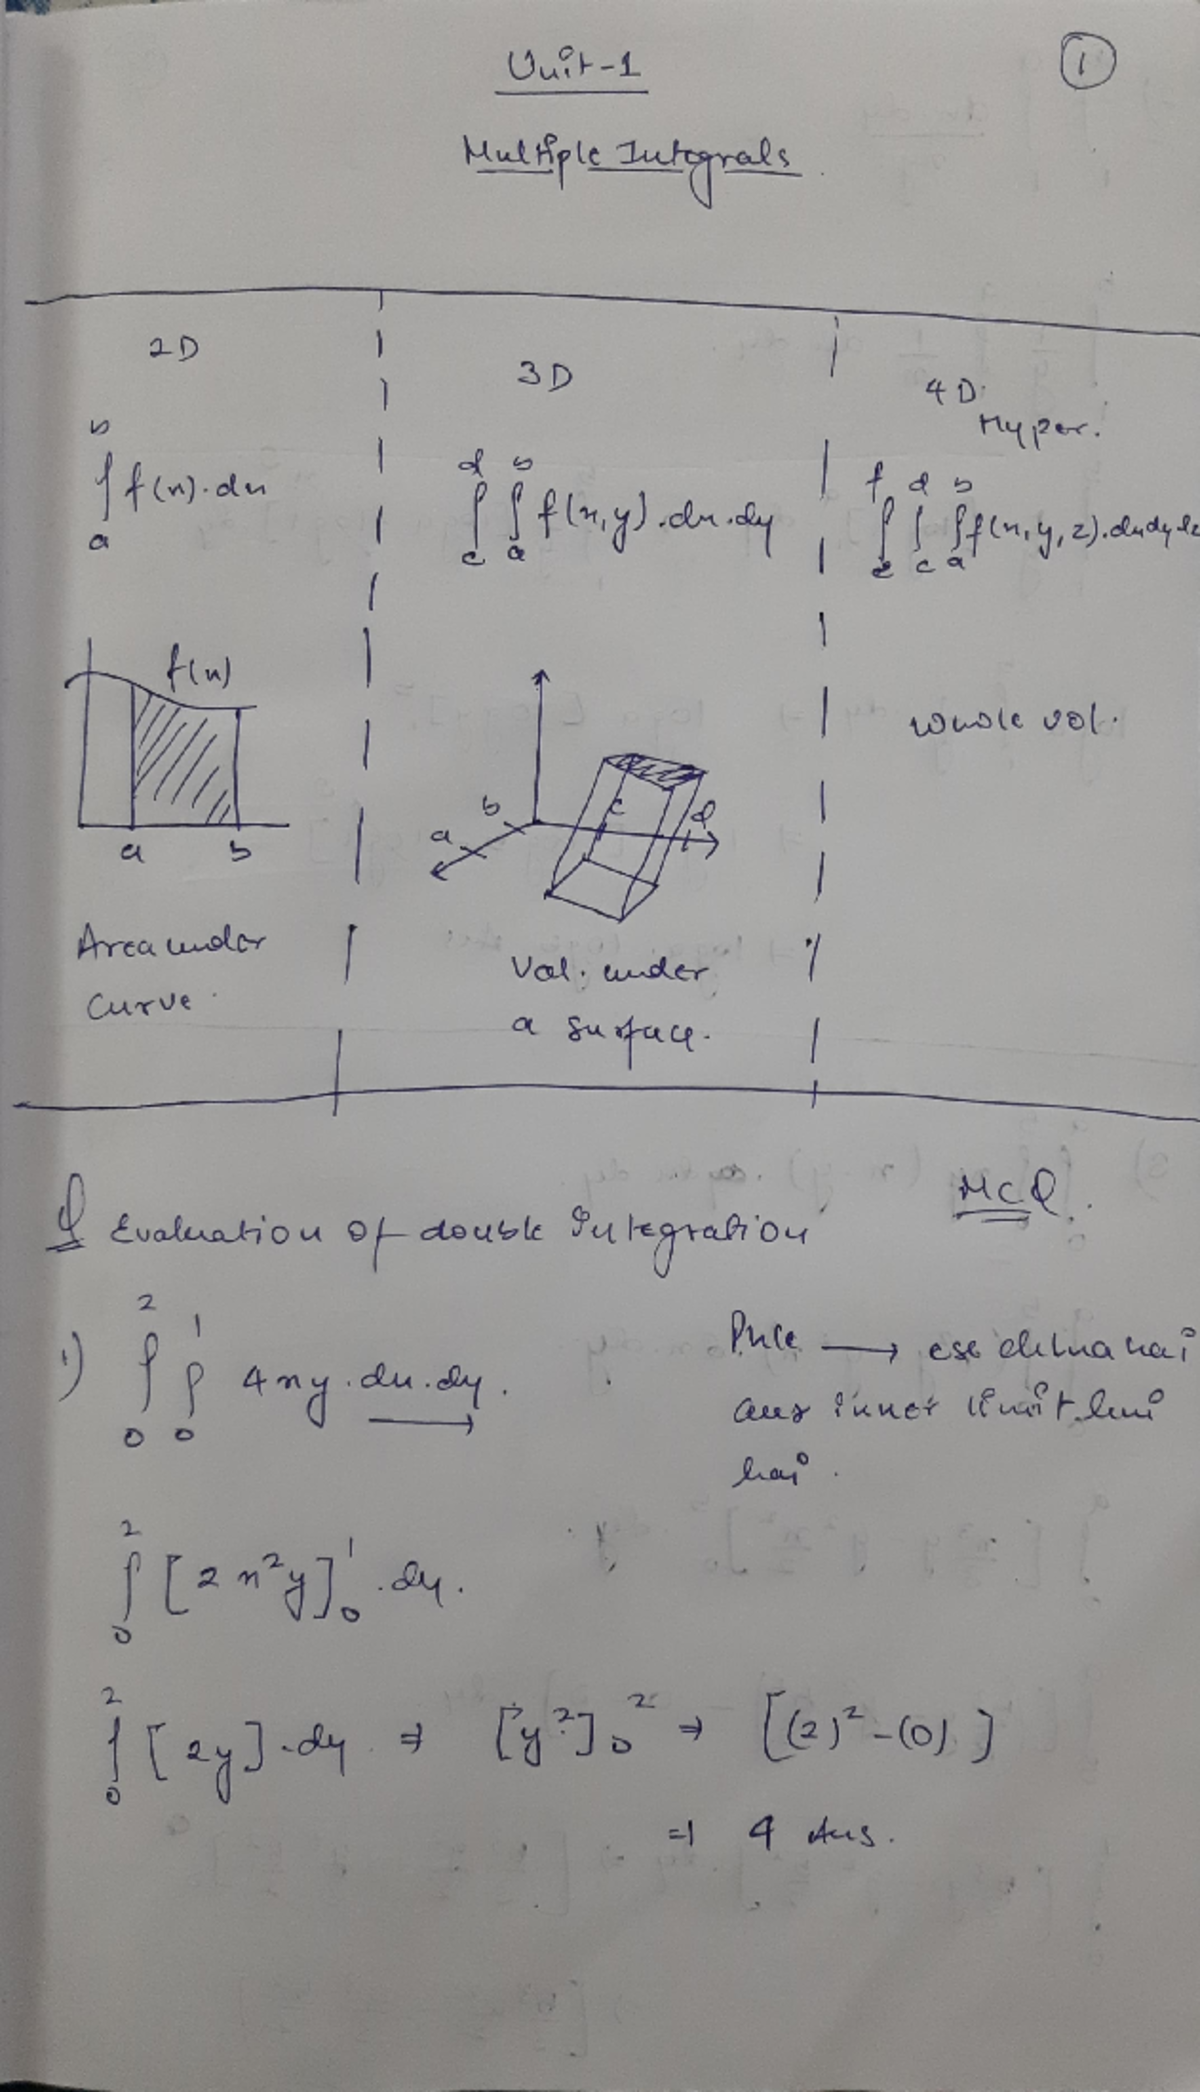 Unit-1
1
Multiple Integrals
2D
∫_a^b f(x).dx
f(x)
a b
Area under
Curve.
3D
∫_c^d ∫_a^b f(x,y).dx.dy
a b c d
Vol. under
a surface.
4D.
Hyper.
∫_e^f ∫_c^d ∫_a^b f(x,y,z).dxdydz
whole vol.
Q Evaluation of double Integration
MCQ.
1) ∫_0^2 ∫_0^1 4xy.dx.dy.
→ ese
aur inner limit
hai.
∫_0^2 [2x²y]_0^1 .dy.
∫_0^2 [2y].dy ⇒ [y²]_0^2 ⇒ [(2)²-(0)]
⇒ 4 Ans.